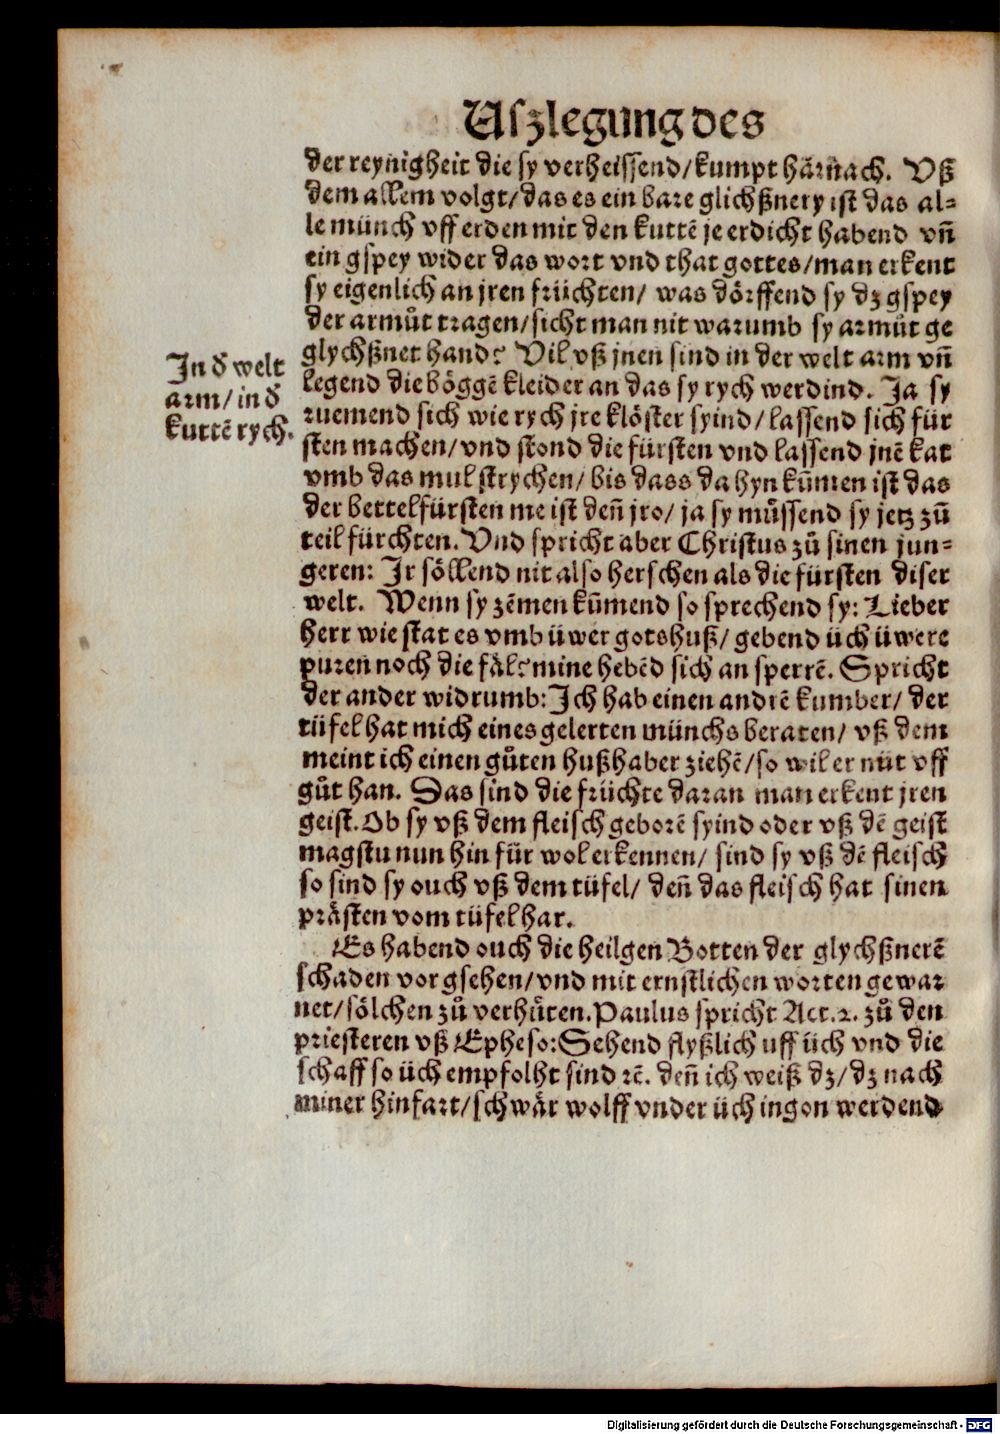 Uſzlegung des
der reynigheit die ſy verheiſſend/kumpt härnach. Vß
dem allem volgt/das es ein bare glichßnery iſt das al⸗
le münch vff erden mit den kuttē je erdicht habend vn̄
ein gſpey wider das wort vnd that gottes/man erkent
ſy eigenlich an jren früchten/ was dörffend ſy dz gſpey
der armůt tragen/ſicht man nit warumb ſy armůt ge
glychßnet hand? Vil vß jnen ſind in der welt arm vn̄
legend die böggē kleider an das ſy rych werdind. Ja ſy
ruemend ſich wie rych jre klöſter ſyind/laſſend ſich für
ſten machen/vnd ſtond die fürſten vnd laſſend jnē kat
vmb das mul ſtrychen/bis dass da hyn kum̄en iſt das
der bettelfürſten me iſt den̄ jro/ ja ſy müſſend ſy jetz zů
teil fürchten. Vnd ſpricht aber Chriſtus zů ſinen jun⸗
geren: Ir ſöllend nit alſo herſchen als die fürſten diſer
welt. Wenn ſy zēmen kum̄end ſo ſprechend ſy: Lieber
herr wie ſtat es vmb üwer gotshuß/gebend üch üwere
puren noch die fäl? mine hebēd ſich an ſperrē. Spricht
der ander widrumb: Ich hab einen andrē kumber/ der
tüfel hat mich eines gelerten münchs beraten/ vß dem
meint ich einen gůten hußhaber ziehē/ſo wil er nüt vff
gůt han. Das ſind die früchte daran man erkent jren
geiſt. Ob ſy vß dem fleiſch geborē ſyind oder vß dē geiſt
magſtu nun hin für wol erkennen/ ſind ſy vß dē fleiſch
ſo ſind ſy ouch vß dem tüfel/ den̄ das fleiſch hat ſinen
präſten vom tüfel har.
Es habend ouch die heilgen Botten der glychßnerē
ſchaden vorgſehen/vnd mit ernſtlichen worten gewar
net/ſölchen zů verhüten. Paulus ſpricht Act.2. zů den
prieſteren vß Epheſo: Sehend flyßlich uff üch vnd die
ſchaff ſo üch empfolht ſind ꝛc̄. den̄ ich weiß dz/dz nach
miner hinfart/ſchwär wolff vnder üch ingon werdend
In ð welt
arm/in ð
kuttē rych.
Digitalisierung gefördert durch die Deutsche Forschungsgemeinschaft - DFG